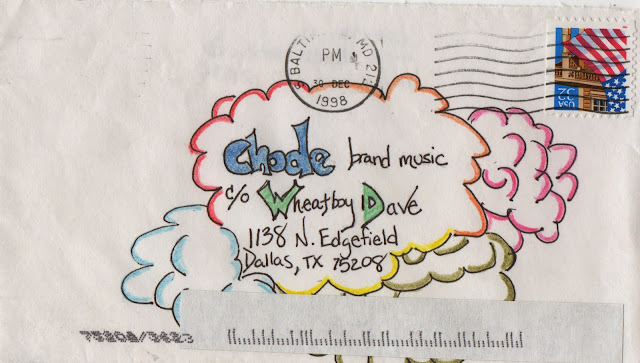 BALTIMORE MD 212
PM
30 DEC
1998
USA
32
Chode brand music
c/o Wheatboy Dave
1138 N. Edgefield
Dallas, TX 75208
75208/3623